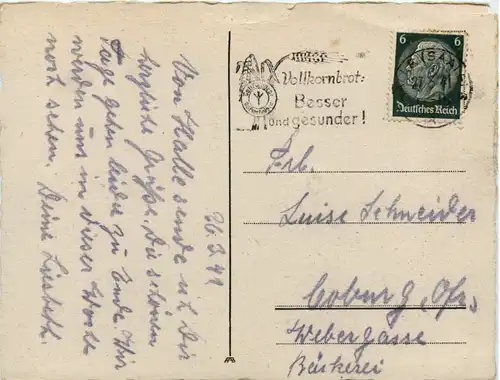 26.3.41
Von Halle sende ich Dir
herzliche Grüße. Die schönen
Tage gehen leider zu Ende. Wir
werden uns in dieser Woche
noch sehen. Deine Liesbeth
Vollkornbrot:
Besser
und gesunder!
(SAA
6 6
Deutsches Reich
Frl.
Luise Schneider
Coburg,
Webergasse
Bäckerei